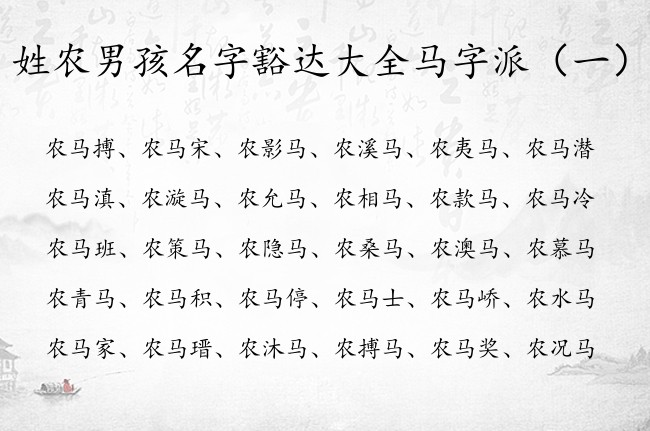 姓农男孩名字豁达大全马字派（一）
农马搏、农马宋、农影马、农溪马、农夷马、农马潜
农马滇、农漩马、农允马、农相马、农款马、农马冷
农马班、农策马、农隐马、农桑马、农澳马、农慕马
农青马、农马积、农马停、农马士、农马峤、农水马
农马家、农马瑨、农沐马、农搏马、农马奖、农况马